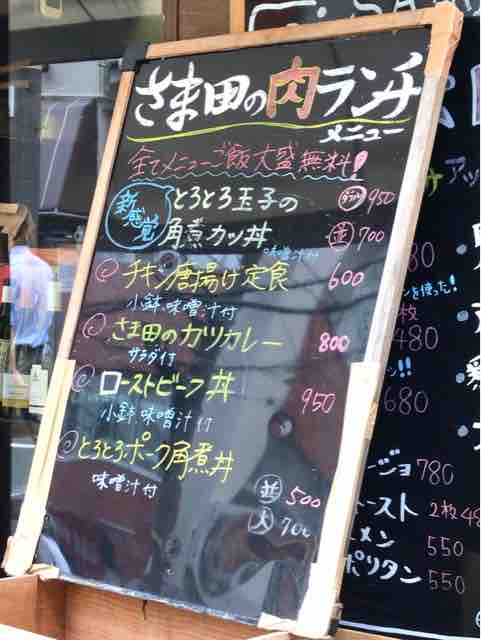 さま田の肉ランチ
メニュー
全てメニューご飯大盛無料!
新感覚
とろとろ玉子の
角煮カツ丼
ダブル 950
並 700
味噌汁付
チキン唐揚げ定食 600
小鉢、味噌汁付
さま田のカツカレー 800
サラダ付
ローストビーフ丼 950
小鉢、味噌汁付
とろとろポーク角煮丼
味噌汁付
並 500
大 700
アッ
80
を使った!
枚
480
!!
680
ージョ 780
ースト 2枚48
メン 550
ポリタン 550